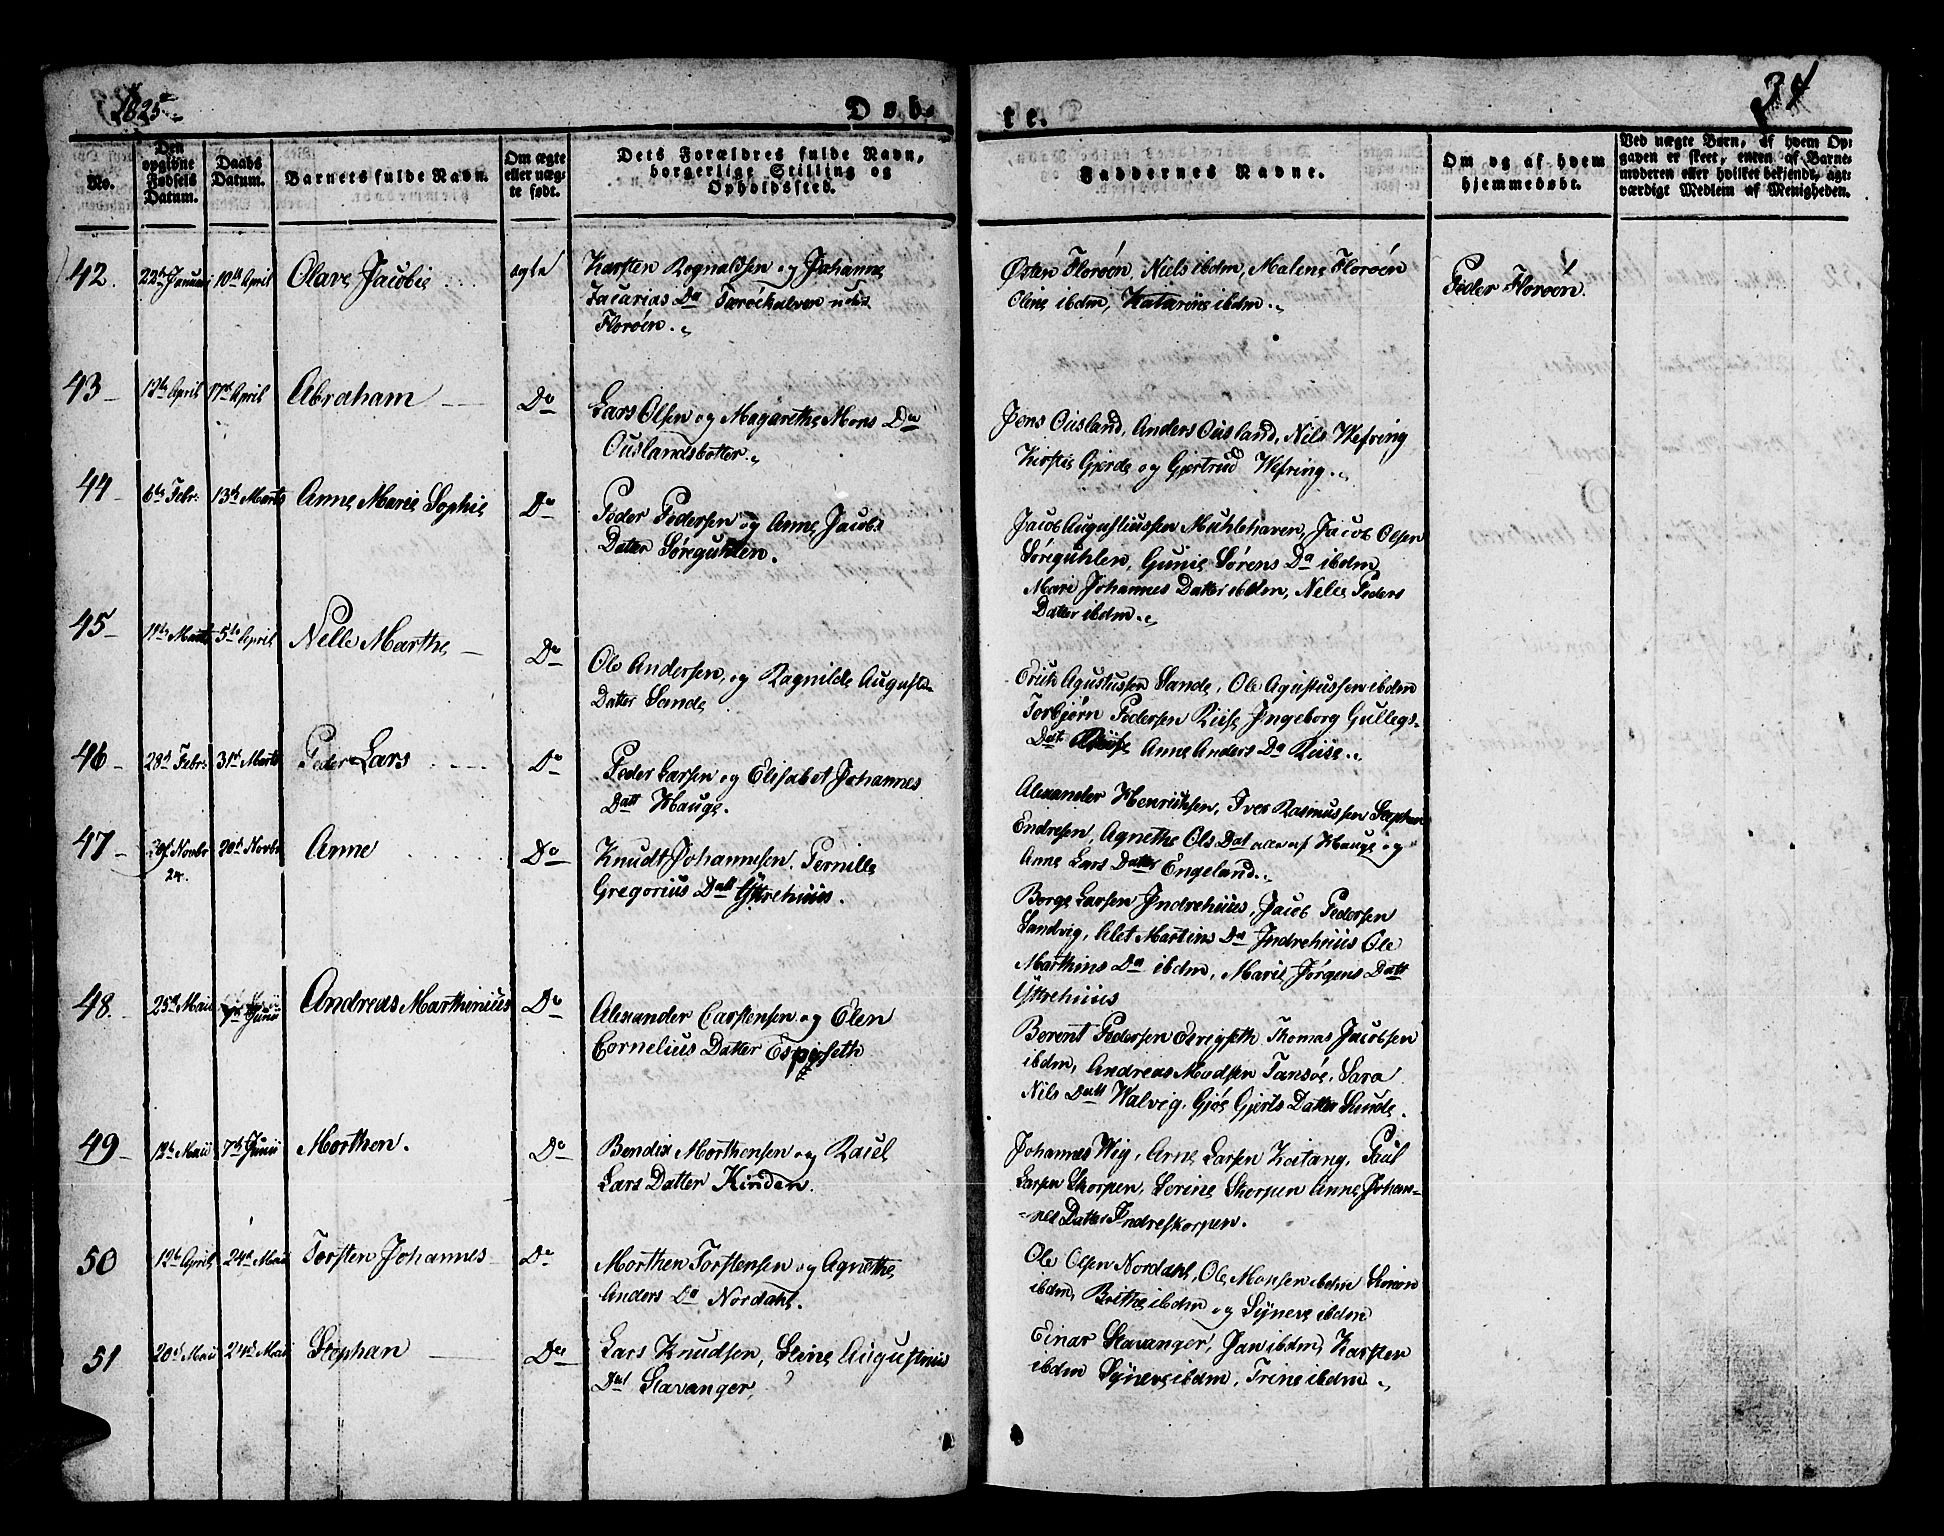 1825
Døb-
te.
34
No.
Den opgivne Fødsels Datum.
Daabs Datum.
Barnets fulde Navn.
Om ægte eller uægte født.
Dets Forældres fulde Navn, borgerlige Stilling og Opholdssted.
Faddernes Navne.
Om og af hvem hjemmedøbt.
Ved uægte Børn, af hvem Opgaven er skeet, enten af Barnemoderen eller hvilket bekjendt, agtværdigt Medlem af Menigheden.
42. 22de Januar 10de April Olave Jacobie ægte
Karsten Rognaldsen og Johanne
Zacarias Da Tærøekalven
Florøen.
Østen Florøen, Niels ibdm, Malene Florøen
Oline ibdm, ibdm.
Peder Florøen.
43 12te April 17de April Abraham Do
Lars Olsen og Magarethe Mons Da
Ouslandsbotten.
Jens Ousland, Anders Ousland, Nils Wefring
Kirstie Gjerde og Gjertrud Wefring.
44 6te Febr: 13de Marts Anne Marie Sophie Do
Peder Pedersen og Anne Jacobs
Datter Søreguhlen.
Jacob Augustiussen Muhlehavnen, Jacob Olsen
Søreguhlen, Gunie Sørens Da ibdm
Mari Johannes Datter ibdm, Nelie Peders
Datter ibdm.
45 Marts 5te April Nelle Marthe Do
Ole Andersen, og Ragnilde August
Datter Sande
Erich Agustussen Sande, Ole Agustussen ibdm
Torbjørn Pedersen Reise Ingeborg Gullegs-
Dat Anne Anders Da Reise.
46 28de Febr: 31de Marts Peder Lars Do
Peder Larsen og Elisabet Johannes
Datt Hauge.
Alexander Henriksen, Iver Rasmussen Stephan
Endresen, Agnethe Ols Dat alle af Hauge og
Anne Lars Datter Engeland.
47 Novbr 24. 20de Novbr Anne Do
Knudt Johannesen. Pernille
Gregorius Datt Yttrehuus.
Børge Larsen Indrehuus, Jacob Pedersen
Sandvig, Martins Da Indrehuus Ole
Marthins Da ibdm, Marie Jørgens Datt
Yttrehuus
48. 25de Maii Junii Andreas Marthinius Do
Alexander Carstensen og Elen
Cornelius Datter Espeseth
Berent Pedersen Thomas Jacobsen
ibdm, Andreas Madsen Tansøe, Sara
Nils Datt Walvig, Gjøe Gjerts Datter Sunde.
49 12te Maii 7de Junii Morthen. Do
Bendix Morthensen og Raiel
Lars Datter Kinden.
Johannes Wiig, Arne Larsen Poul
Larsen Skorpen, Sorine Skorpen Anne Johan-
nes Datter Indreskorpen.
50 12te April 24de Maii Torsten Johannes Do
Morthen Torstensen og Agnethe
Anders Da Nordahl.
Ole Olsen Nordahl, Ole Monsen ibdm Simon
ibdm, Berthe ibdm og Syneve ibdm
51 20de Maii 24de Maii Stephan Do
Lars Knudsen, Stine Augustinius
Dat Stavanger.
Einar Stavanger, Jan ibdm, Karsten
ibdm Synneve ibdm, Trine ibdm.